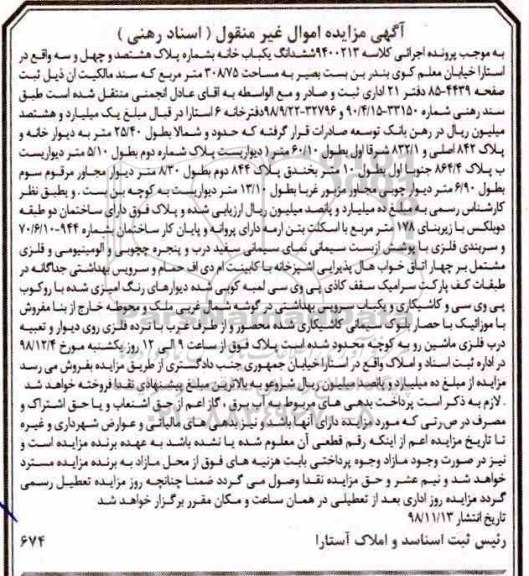 آگهی مزایده اموال غیر منقول ( اسناد رهنی )
به موجب پرونده اجرائی کلاسه ۹۴۰۰۲۱۳ششدانگ یکباب خانه بشماره پلاک هشتصد و چهل و سه واقع در
آستارا خیابان معلم کوی بندر بن بست بصیر به مساحت ۳۰۸/۷۵ متر مربع که سند مالکیت آن ذیل ثبت
صفحه ۴۴۳۹-۸۵ دفتر ۲۱ اداری ثبت و صادر و مع الواسطه به آقای عادل انجمنی منتقل شده است طبق
سند رهنی شماره ۳۳۱۵۰-۹۰/۴/۱۵ و ۳۲۷۹۶-۹۸/۹/۲۲دفترخانه ۶ آستارا در قبال مبلغ یک میلیارد و هشتصد
میلیون ریال در رهن بانک توسعه صادرات قرار گرفته که حدود و شمالا بطول ۲۵/۴۰ متر به دیوار خانه و
پلاک ۸۴۲ اصلی و ۸۳۲/۱ شرقا اول بطول ۶۰/۱۰ متر ( دیواریست پلاک شماره دوم بطول ۵/۱۰ متر دیواریست
ب پلاک ۸۶۴/۴ جنوبا اول بطول ۱۰ متر بخندق پلاک ۸۴۴ دوم بطول ۸/۳۰ متر دیوار مجاور مرقوم سوم
بطول ۶/۹۰ متر دیوار چوبی مجاور مزبور غربا بطول ۱۳/۱۰ متر دیواریست به کوچه بن بست . و بطبق نظر
کارشناس رسمی به مبلغ ده میلیارد و پانصد میلیون ریال ارزیابی شده و پلاک فوق دارای ساختمان دو طبقه
دوبلکس با زیربنای ۱۷۸ متر مربع با اسکلت بتن آرمه دارای پروانه و پایان کار ساختمان بشماره ۹۴۴-۷۰/۶/۱۰
و سربندی فلزی با پوشش ازبست سیمانی نمای سیمانی سفید درب و پنجره چجوبی و آلومینیومی و فلزی
مشتمل بر چهار اتاق خواب هال پذیرایی آشپزخانه با کابینت ام دی اف حمام و سرویس بهداشتی جداگانه در
طبقات کف پارکت سرامیک سقف کاذی پی وی سی لمبه کوبی شده دیوارهای رنگ آمیزی شده با روکوب
پی وی سی و کاشیکاری و یکباب سرویس بهداشتی در گوشه شمال غربی ملک و محوطه خارج از بنا مفروش
با موزائیک با حصار بلوک سیمانی کاشیکاری شده محصور و از طرف غرب با نرده فلزی روی دیوار و تعبیه
درب فلزی ماشین رو به کوچه محدود شده است پلاک فوق از ساعت ۹ الی ۱۲ روز یکشنبه مورخ ۹۸/۱۲/۴
در اداره ثبت اسناد و املاک واقع در آستارا خیابان جمهوری جنب دادگستری از طریق مزایده بفروش می رسد
مزایده از مبلغ ده میلیارد و پانصد میلیون ریال شروع و به بالاترین مبلغ پیشنهادی نقدا فروخته خواهد شد
. لازم به ذکر است پرداخت بدهی های مربوط به آب ، برق ، گاز اعم از حق انشعاب و یا حق اشتراک و
مصرف در صورتی که مورد مزایده دارای آنها باشد و نیز بدهی های مالیاتی و عوارض شهرداری و غیره
تا تاریخ مزایده اعم از اینکه رقم قطعی آن معلوم شده یا نشده باشد به عهده برنده مزایده است و
نیز در صورت وجود مازاد وجوه پرداختی بابت هزینه های فوق از محل مازاد به برنده مزایده مسترد
خواهد شد و نیم عشر و حق مزایده نقدا وصول می گردد ضمنا چنانچه روز مزایده تعطیل رسمی
گردد مزایده روز اداری بعد از تعطیلی در همان ساعت و مکان مقرر برگزار خواهد شد
تاریخ انتشار ۹۸/۱۱/۱۳
رئیس ثبت اسناسد و املاک آستارا
۶۷۴